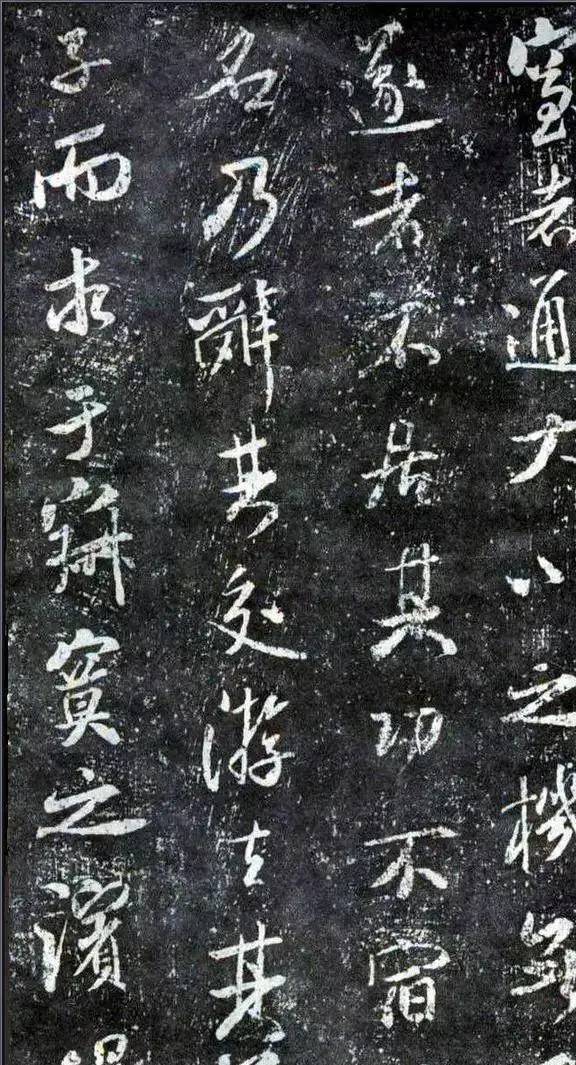 室者通大小之機無
遂者不居其功不宿
名乃辭其交游去其
子而求于寂寞之濱